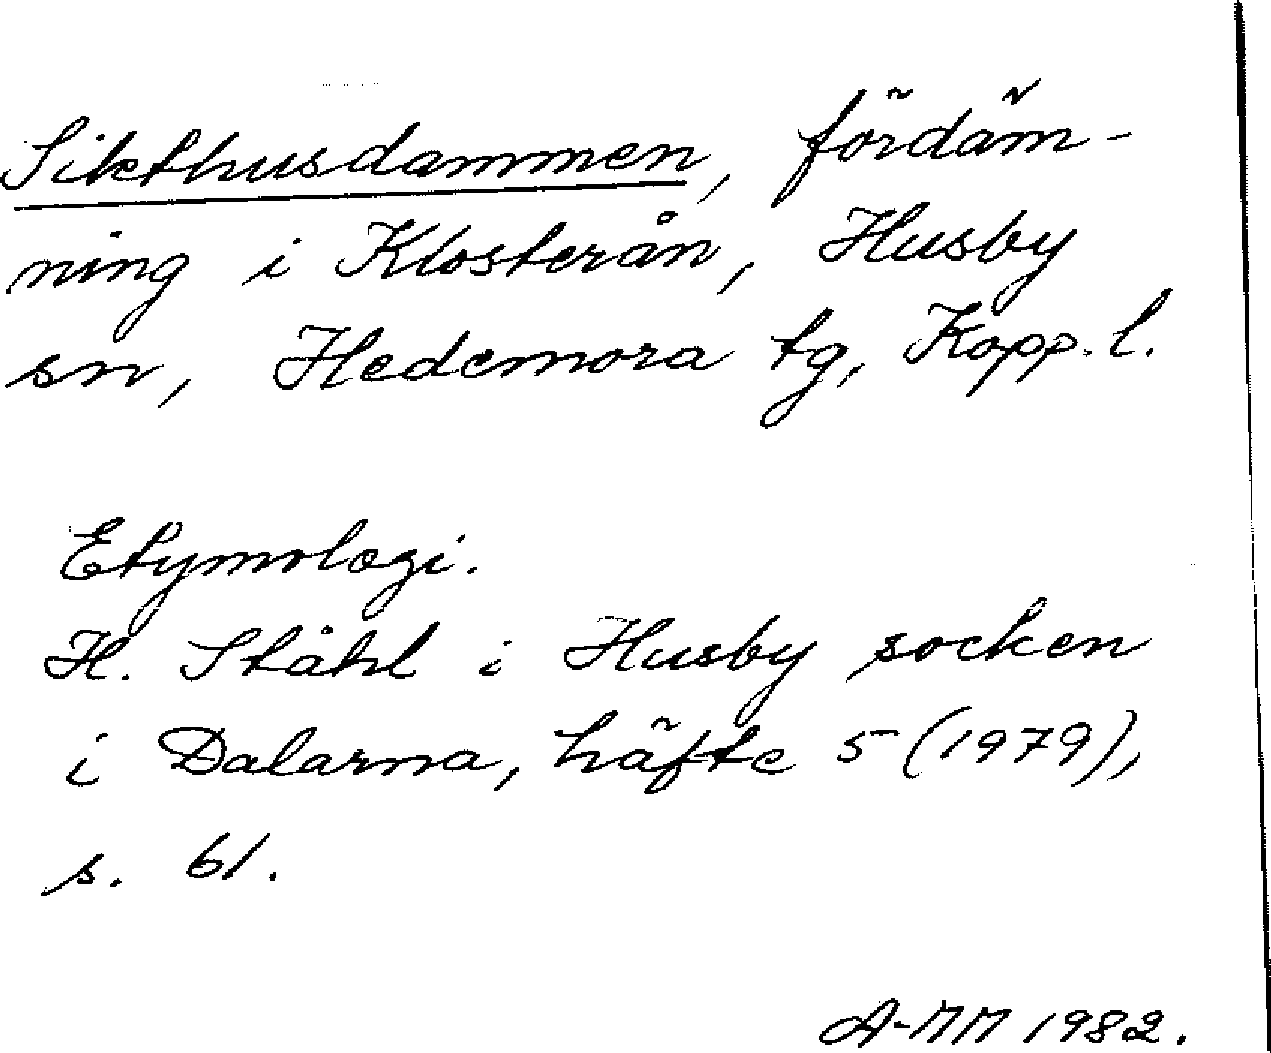 Sikthusdammen, fördäm-
ning i Klosterån, Husby
sn, Hedemora tg, Kopp. l.
Etymologi.
H. Ståhl i Husby socken
i Dalarna, häfte 5 (1979),
s. 61.
A-MM 1982.